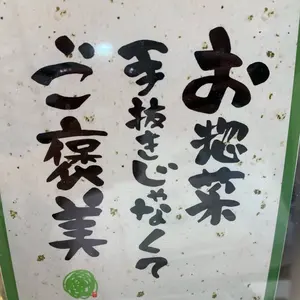 お惣菜
手抜きじゃなくて
ご褒美